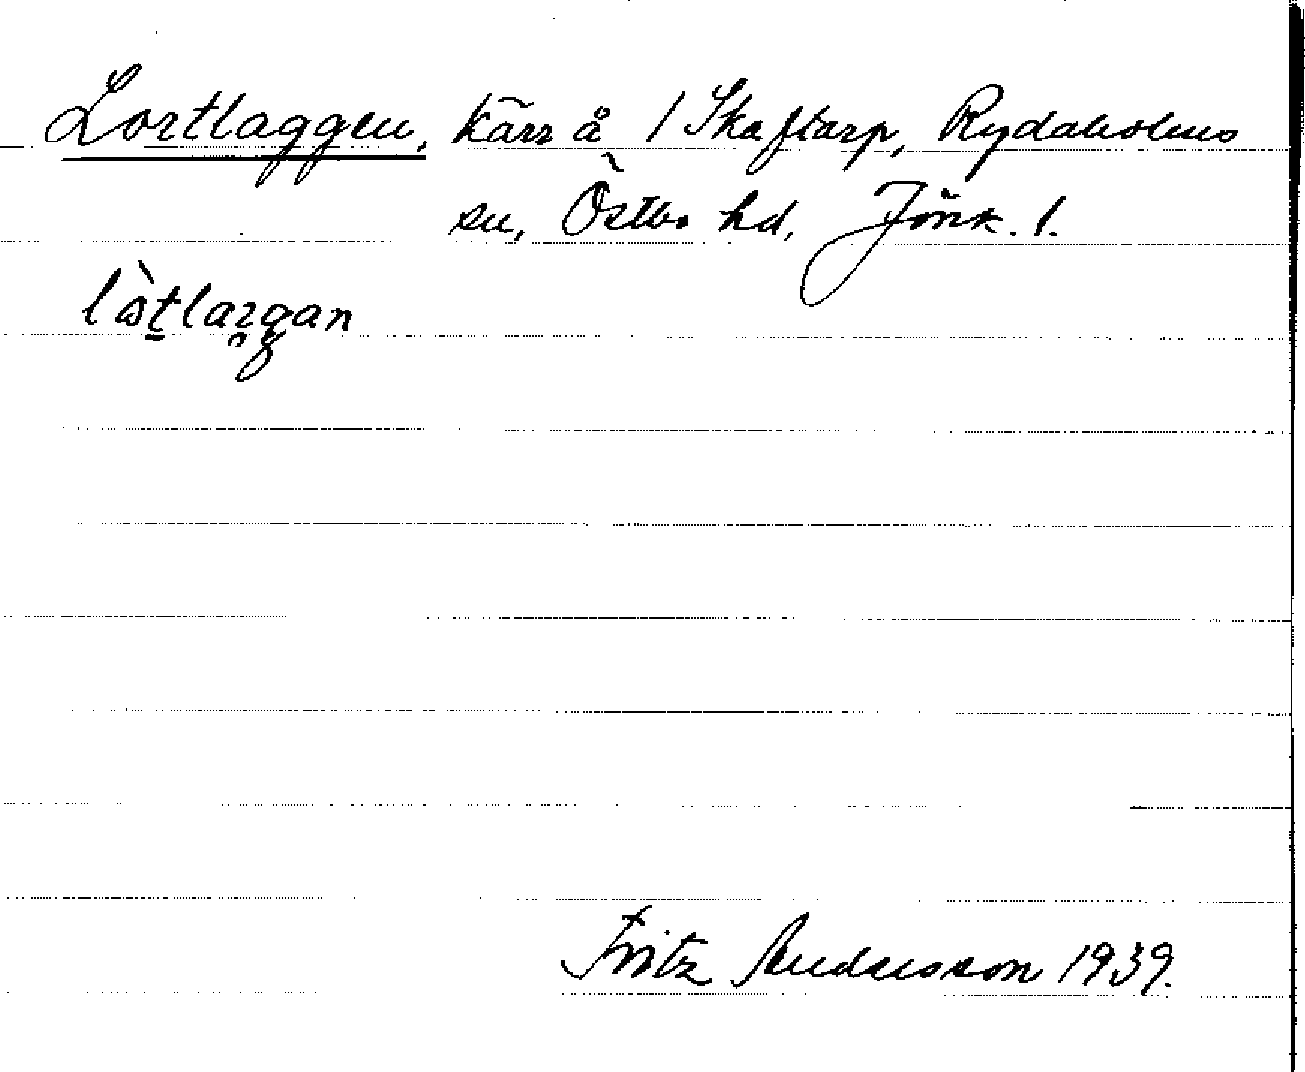 Lortlaggen, kärr å 1 Skaftarp, Rydaholms
sn, Östbo hd, Jönk. l.
Fritz Andersson 1939.